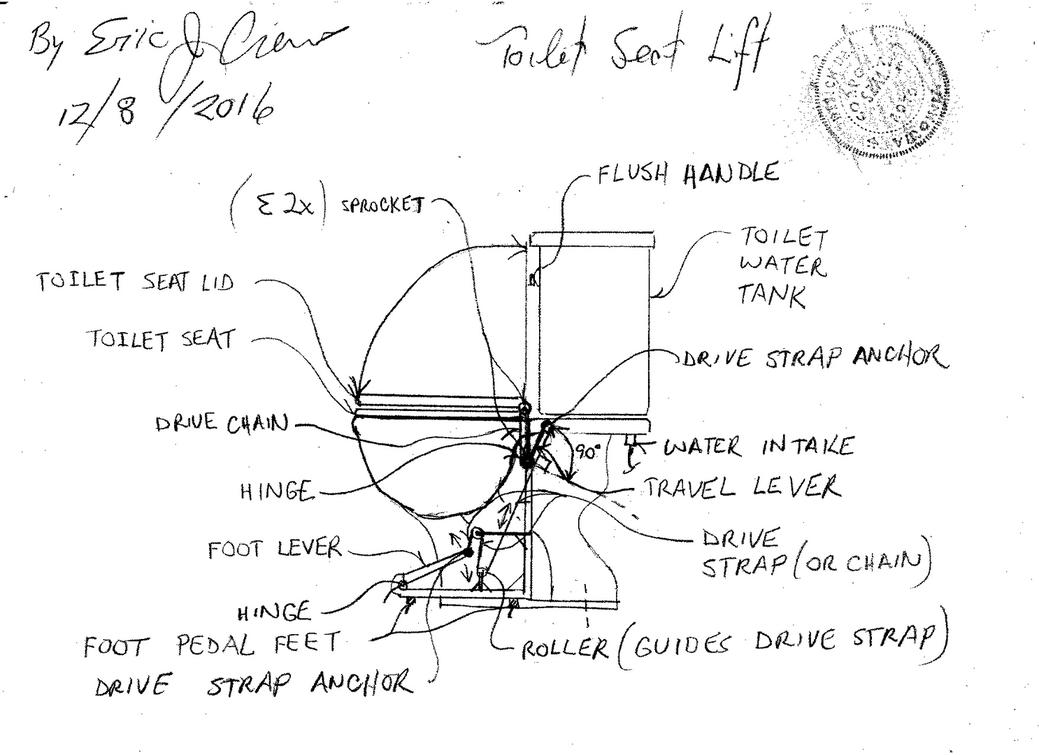 By Eric J
Toilet Seat Lift
12/8/2016
FLUSH HANDLE
(Σ 2x) SPROCKET
TOILET
WATER
TANK
TOILET SEAT LID
TOILET SEAT
DRIVE STRAP ANCHOR
DRIVE CHAIN
90°
WATER INTAKE
HINGE
TRAVEL LEVER
DRIVE
STRAP (OR CHAIN)
FOOT LEVER
HINGE
FOOT PEDAL FEET
ROLLER (GUIDES DRIVE STRAP)
DRIVE STRAP ANCHOR